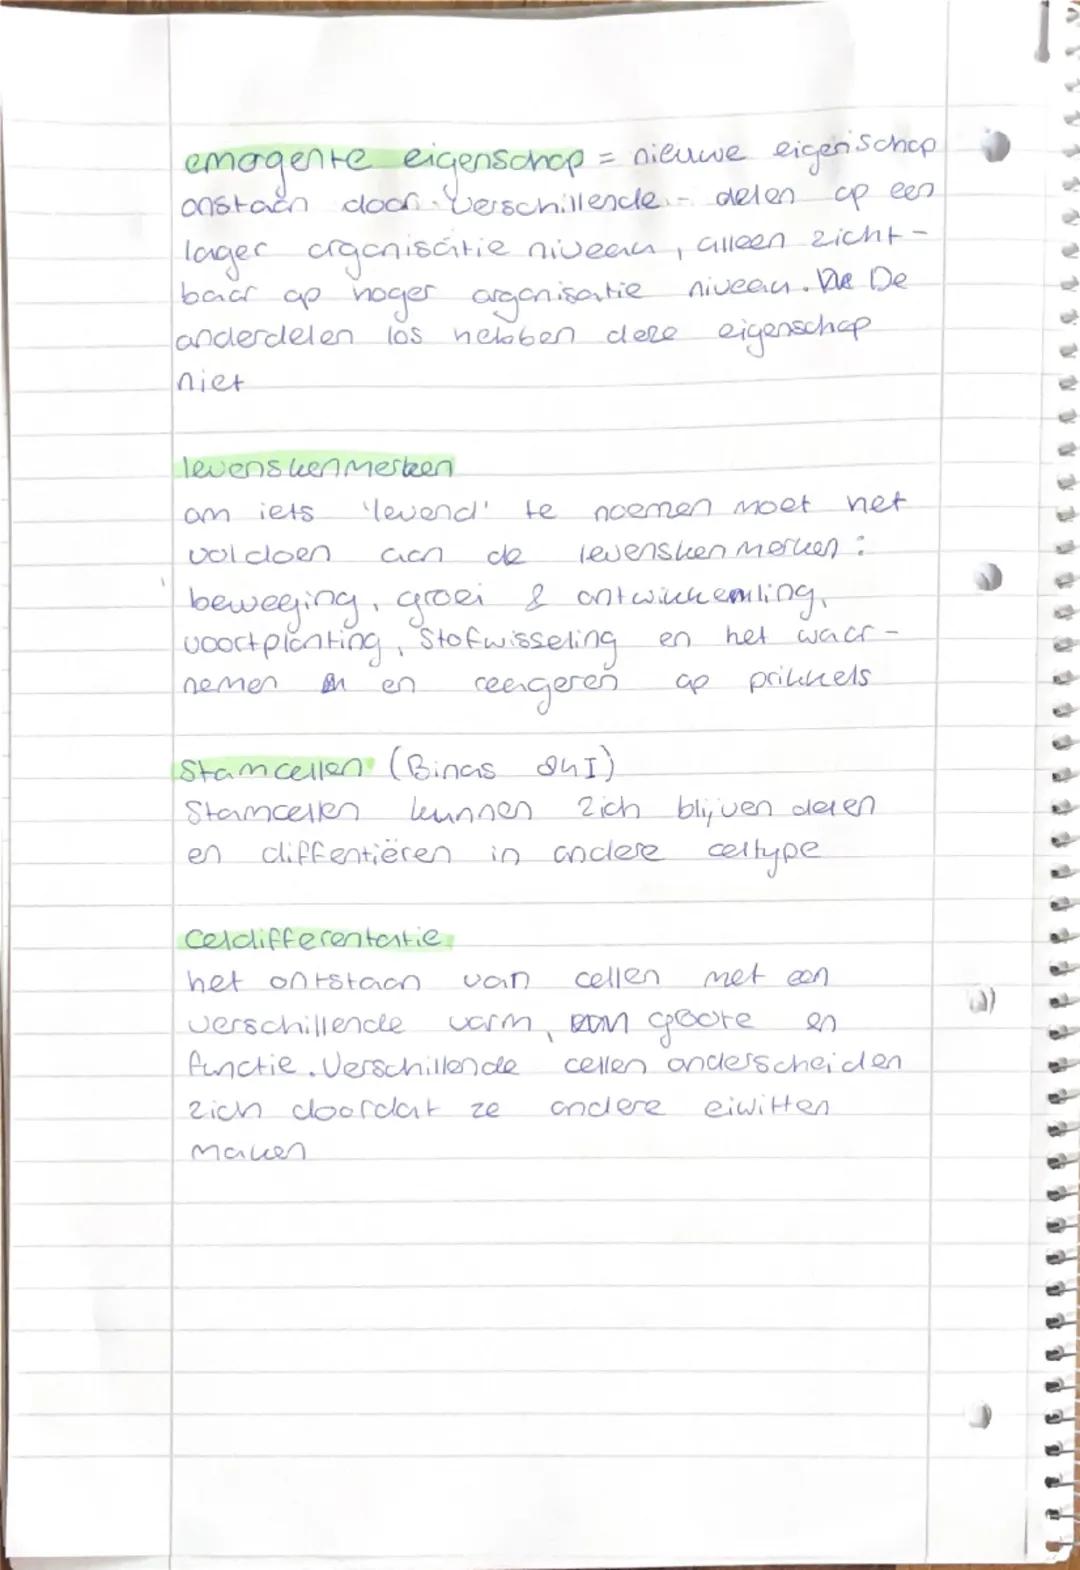 emogente eigenschap = nieuwe eigenschap
onstaan door verschillende - delen op een
lager organisatie niveau, alleen zicht-
baar op hoger organisatie niveau. De De
onderdelen los hebben deze eigenschap
niet
levenskenmerken
om iets 'levend' te noemen moet het
voldoen aan de levenskenmerken:
beweeging, groei & ontwikkeling,
voortplanting, stofwisseling en het waar-
nemen en reageren op prikkels
Stamcellen (Binas I)
Stamcellen kunnen zich blijven delen
en diffentiëren in andere celtype
Celdifferentatie
het ontstaan van cellen met een
verschillende vorm, groote en
functie. Verschillende cellen onderscheiden
zich doordat ze andere eiwitten
maken